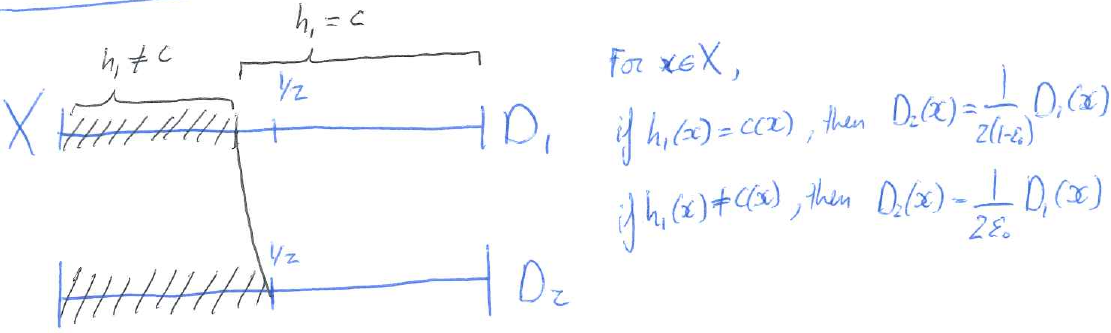 h₁ = c
h₁ ≠ c
1/2
X D₁
1/2
D₂
For x∈X,
if h₁(x) = c(x), then D₂(x) = 1/2(1-ε₀) D₁(x)
if h₁(x) ≠ c(x), then D₂(x) = 1/2ε₀ D₁(x)